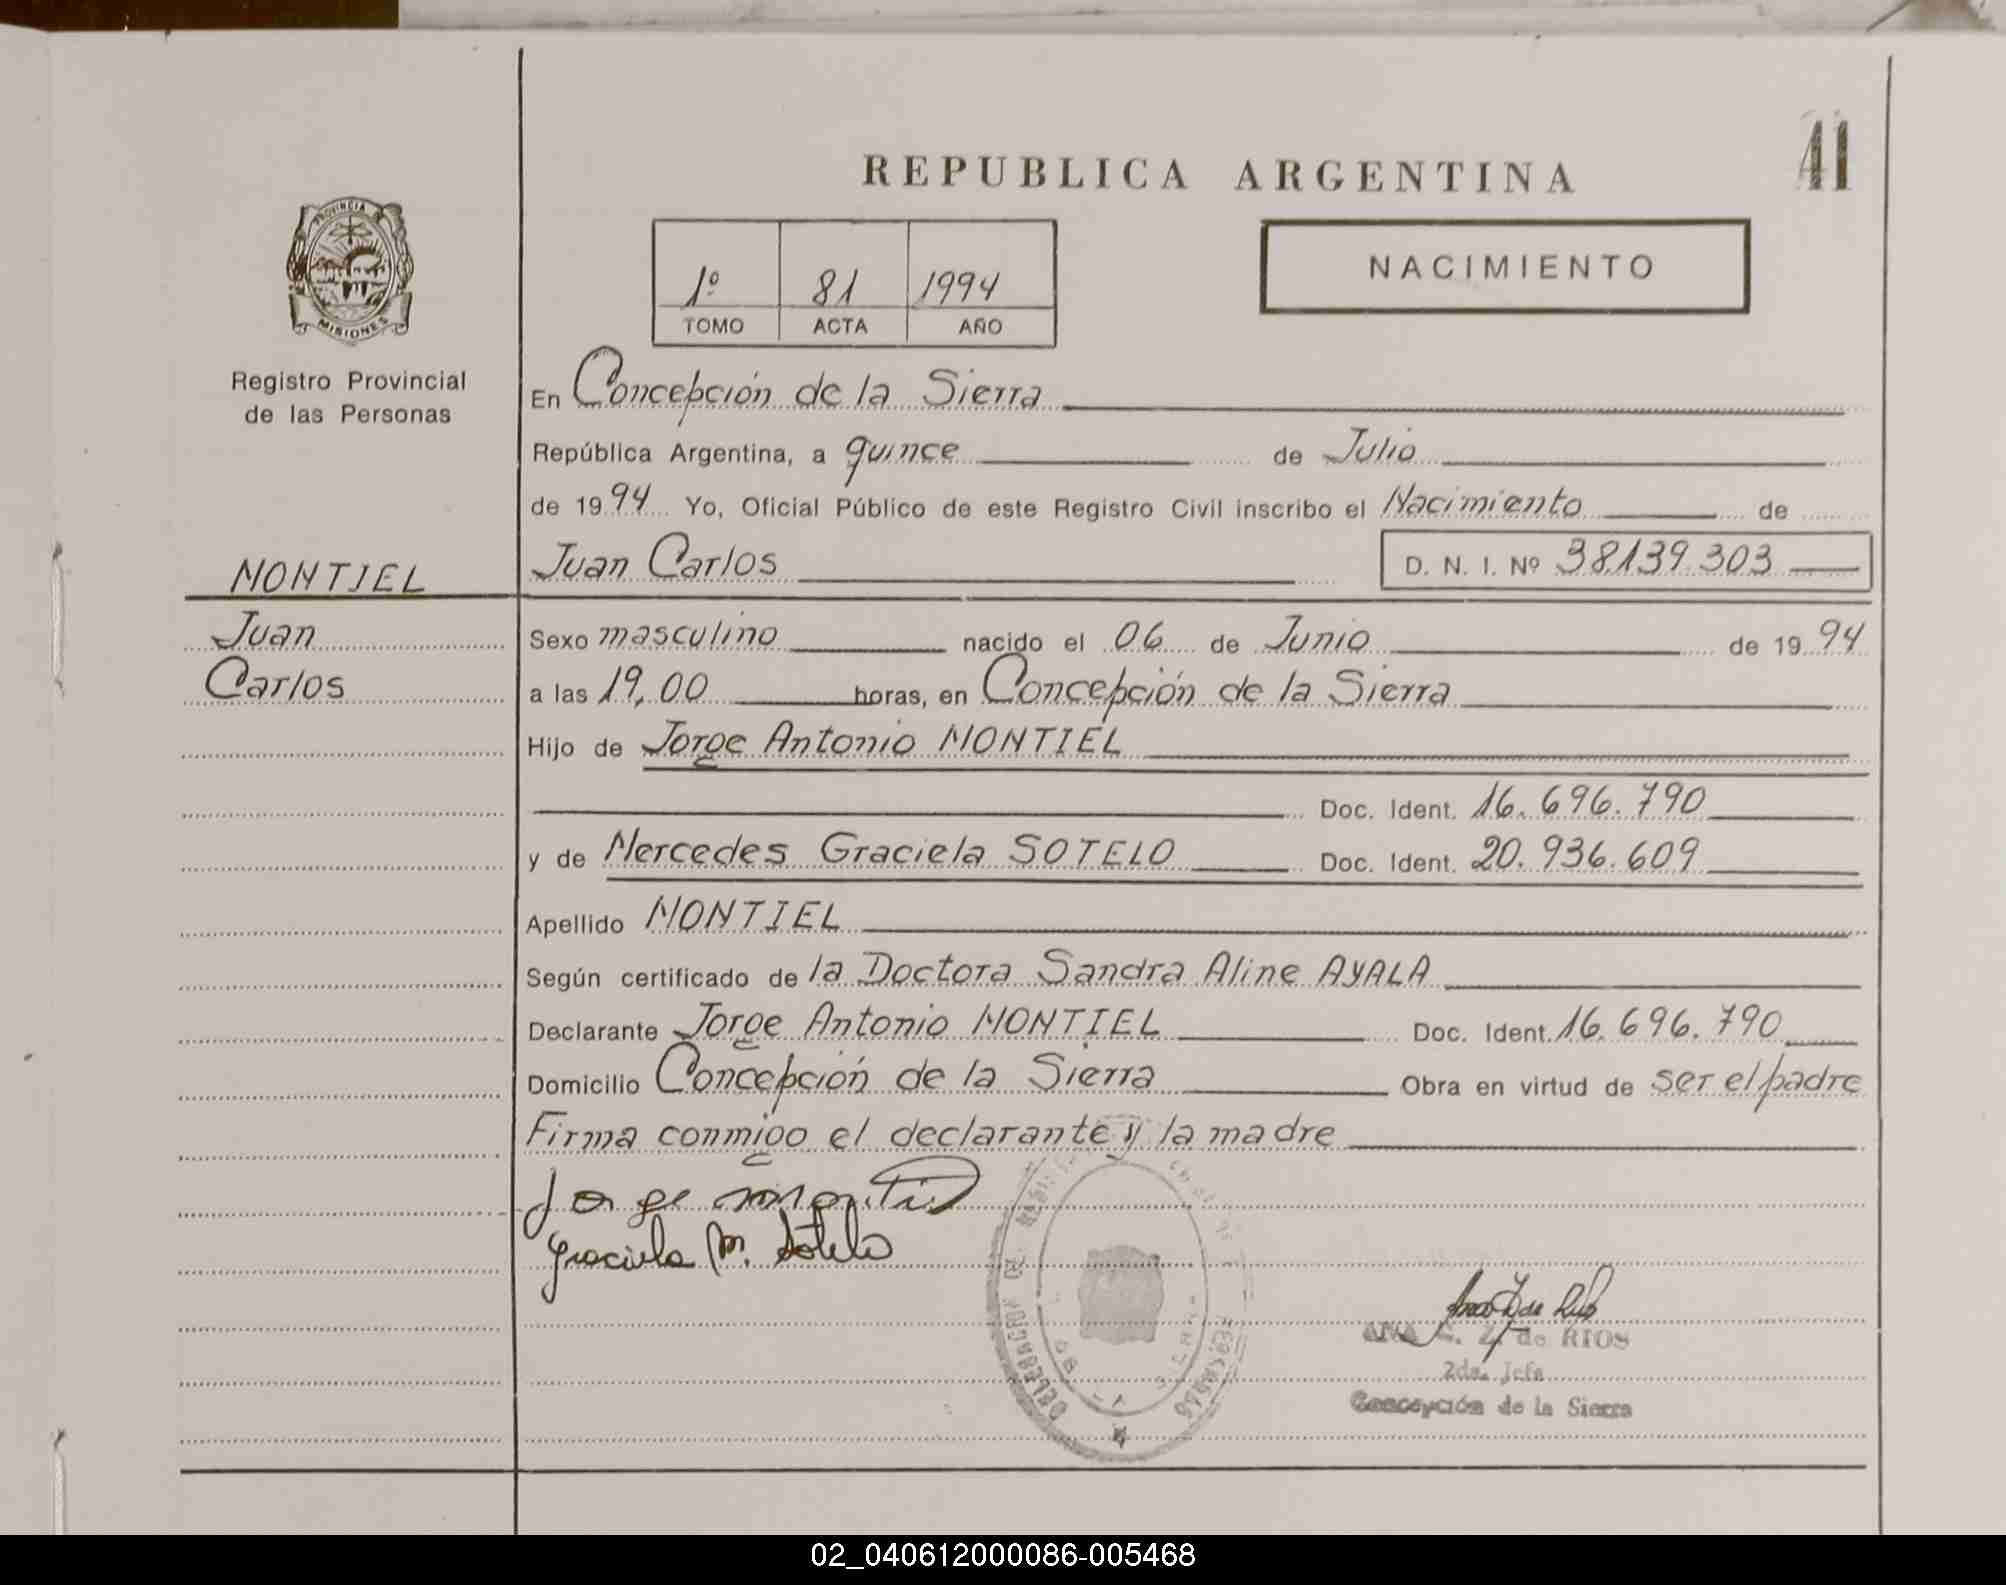 41
REPUBLICA ARGENTINA
PROVINCIA DE
MISIONES
Registro Provincial
de las Personas
1º 81 1994
TOMO ACTA AÑO
NACIMIENTO
En Concepción de la Sierra
República Argentina, a quince de Julio
de 1994 Yo, Oficial Público de este Registro Civil inscribo el Nacimiento de
MONTIEL
Juan Carlos D. N. I. Nº 38.139.303
Juan
Carlos
Sexo masculino nacido el 06 de Junio de 1994
a las 19,00 horas, en Concepción de la Sierra
Hijo de Jorge Antonio MONTIEL
Doc. Ident. 16.696.790
y de Mercedes Graciela SOTELO Doc. Ident. 20.936.609
Apellido MONTIEL
Según certificado de la Doctora Sandra Aline AYALA
Declarante Jorge Antonio MONTIEL Doc. Ident. 16.696.790
Domicilio Concepción de la Sierra Obra en virtud de ser el padre
Firma conmigo el declarante y la madre
Jorge Montiel
Graciela M. Sotelo
de RIOS
2da. Jefa
Concepción de la Sierra
02_040612000086-005468